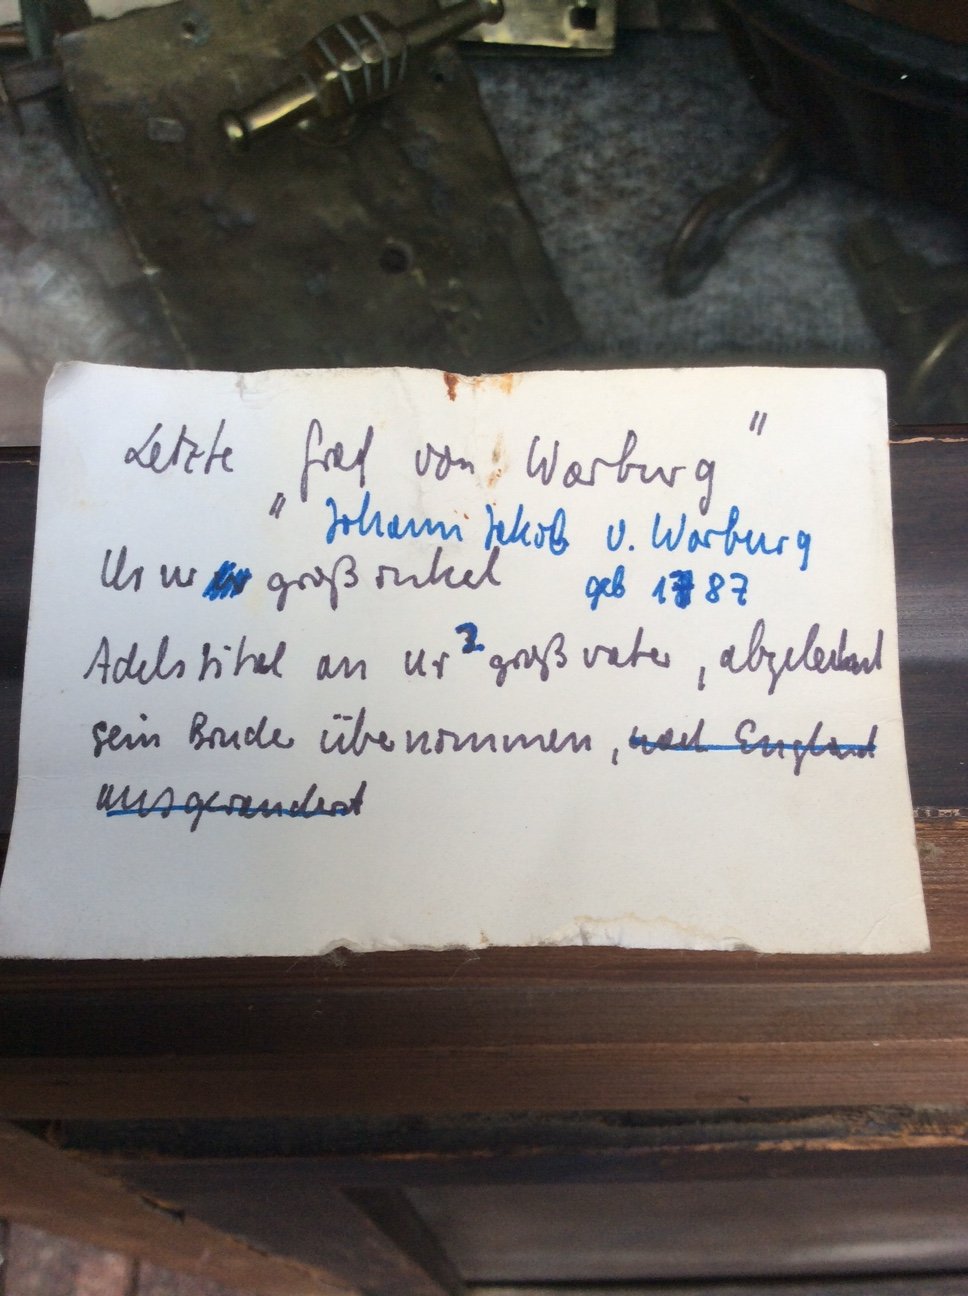 Letzte "Graf von Warburg"
Johann Jakob v. Warburg
Ur ur großonkel geb 1787
Adelstitel an ur² großvater, abgelehnt
sein Bruder übernommen, nach England
ausgewandert